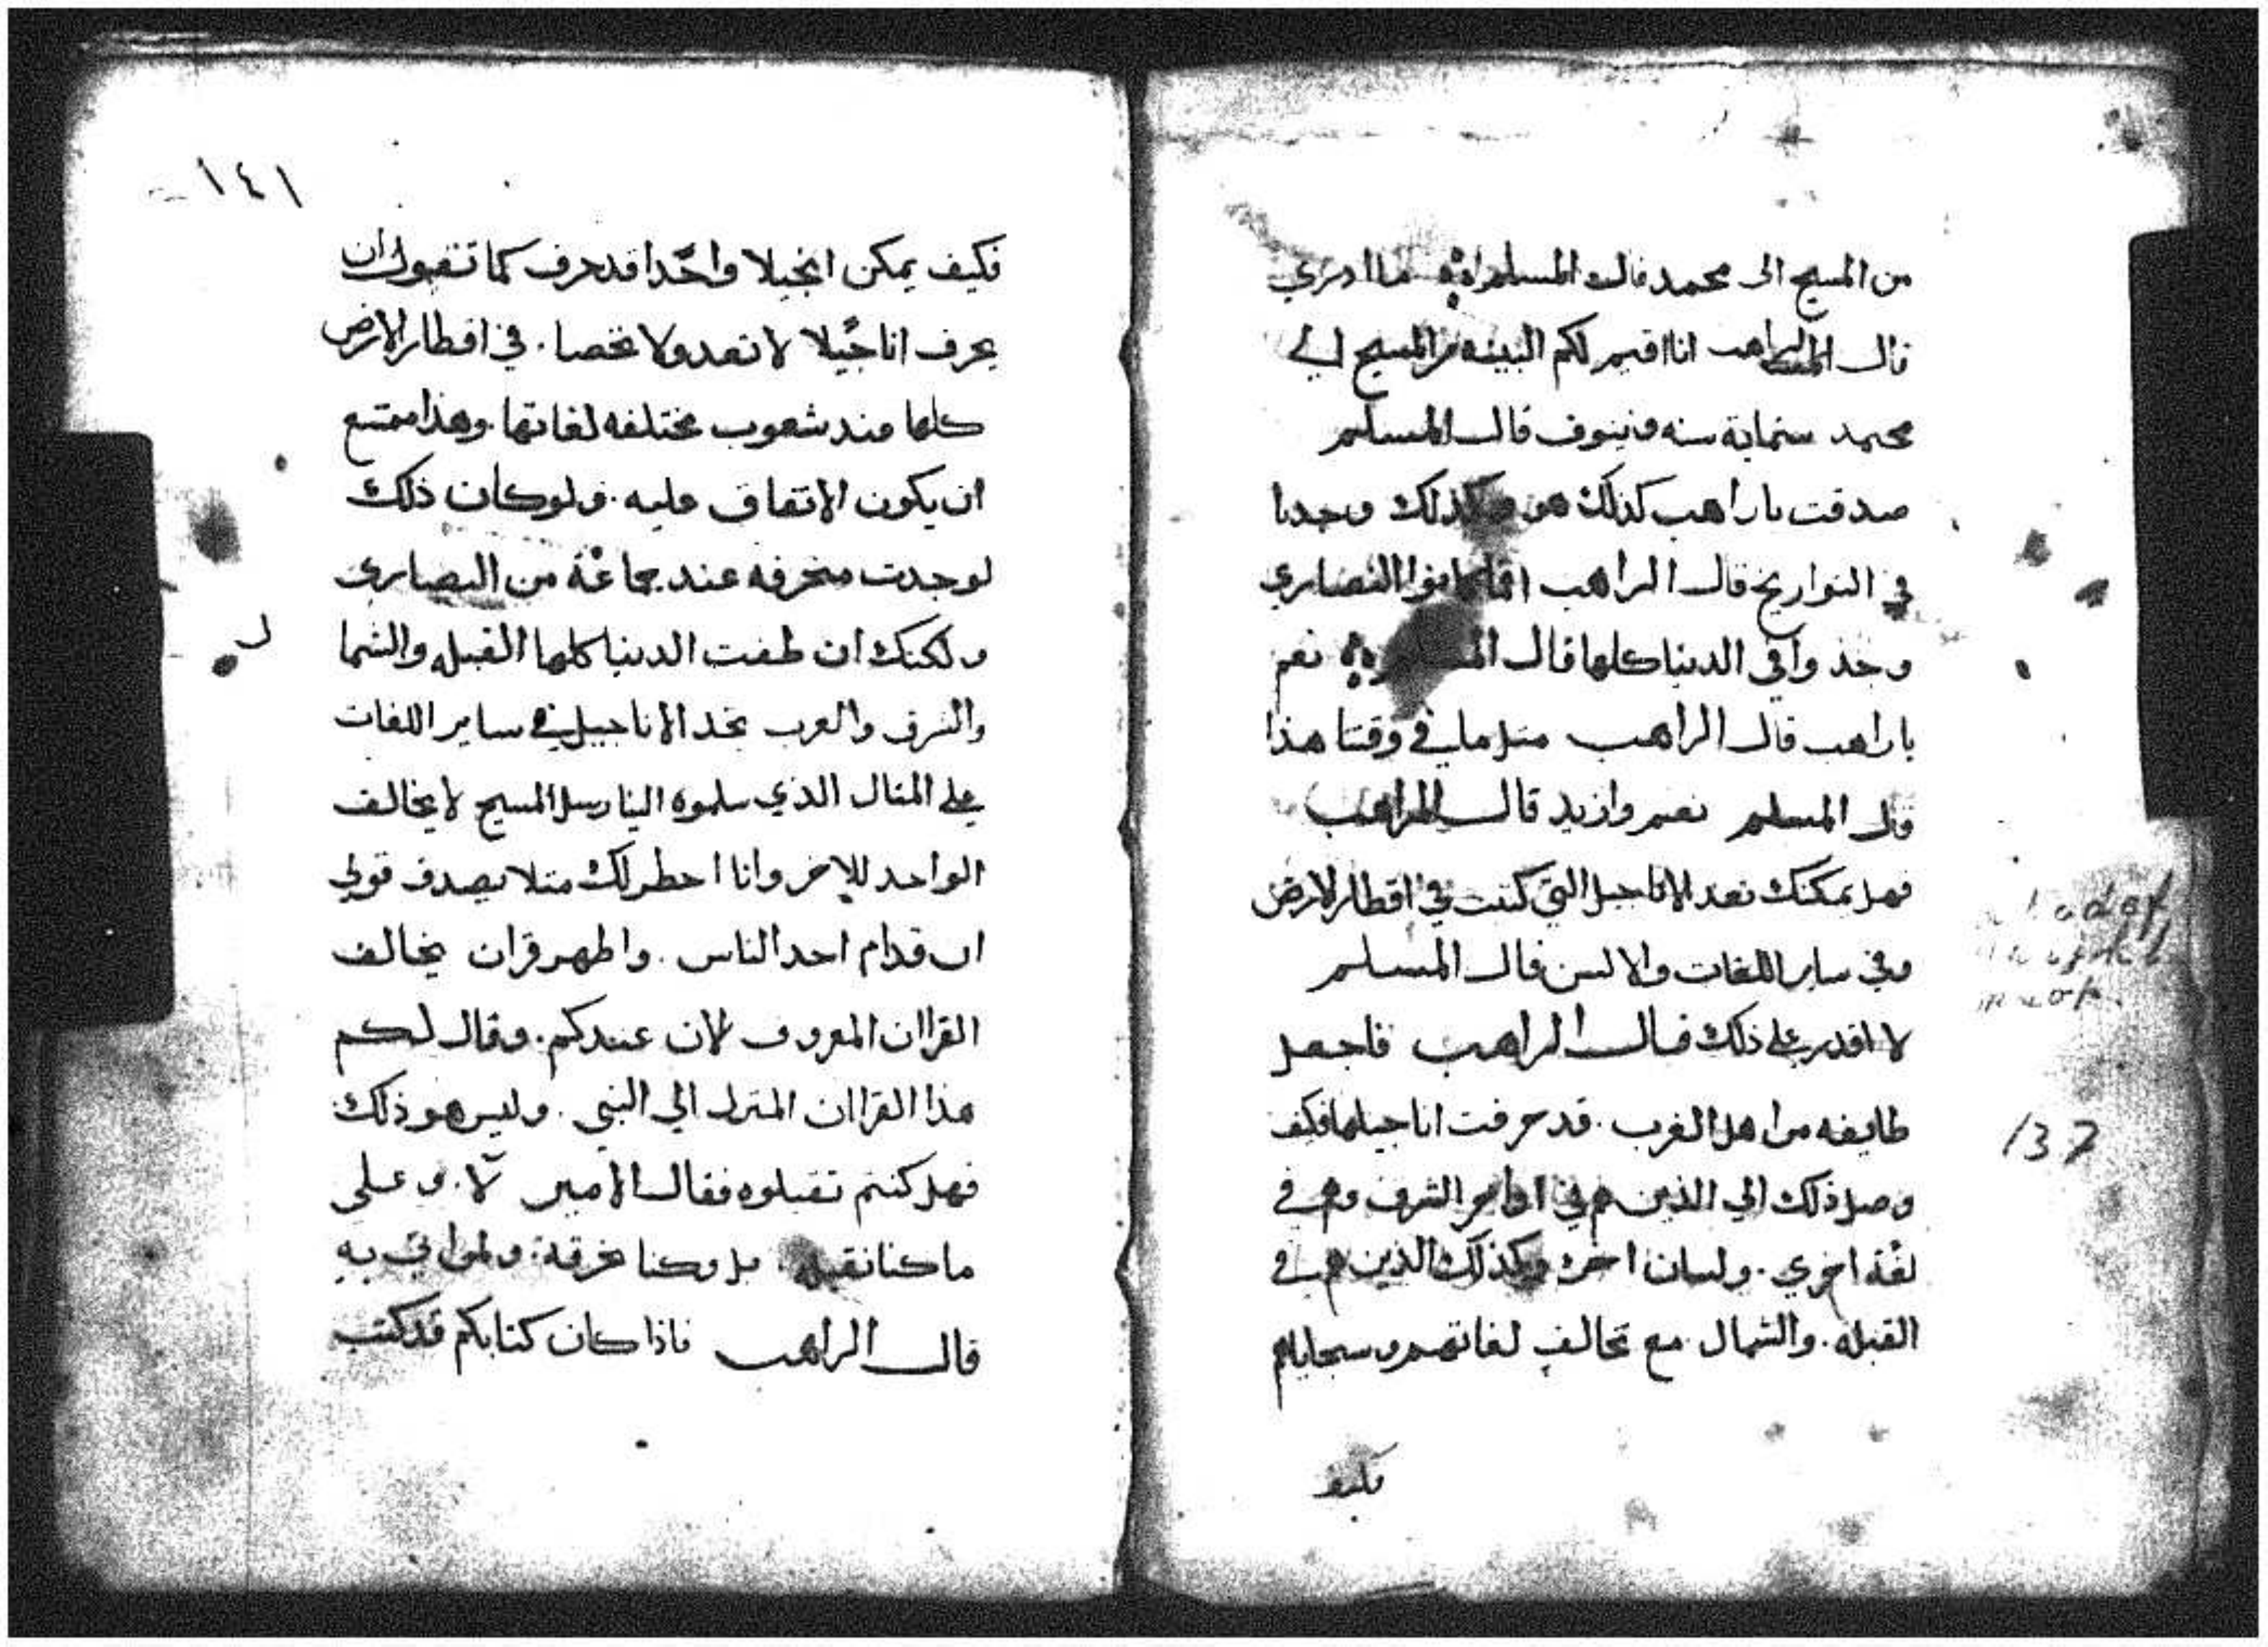 من المسيح الى محمد قال المسلم ما ادري
قال الراهب انا اقيم لكم البينه من المسيح الي
محمد ستماية سنه ونيوف قال المسلم
صدقت ياراهب كذلك هو وكذلك وجدنا
في التواريخ قال الراهب النصاري
وجدوا في الدنيا كلها قال نعم
ياراهب قال الراهب مثل ما في وقتنا هذا
قال المسلم نعم وازيد قال الراهب
فهل يمكنك تعد الاناجيل التي كتبت في اقطار الارض
وفي ساير اللغات والالسن قال المسلم
لا اقدر على ذلك قال الراهب فاجعل
طايفه من اهل الغرب. قد حرفت اناجيلها فكيف
وصل ذلك الي الذين هم في اقاصي الشرق وهم في
لغة اخري. ولسان اخر وكذلك الذين هم في
القبله. والشمال مع تخالف لغاتهم وسجاياهم
فكيف
١٤١
فكيف يمكن انجيلا واحدا قد حرف كما تقول ان
يحرف اناجيلا لا تعد ولا تحصا. في اقطار الارض
كلها عند شعوب مختلفه لغاتها. وهذا ممتنع
ان يكون الاتفاق عليه. ولو كان ذلك
لوجدت منحرفه عند جماعة من النصارى
ولكنك ان طفت الدنيا كلها القبله والشما
ل
والشرق والغرب تجد الاناجيل في ساير اللغات
على المثال الذي سلموه الينا رسل المسيح لا يخالف
الواحد للاخر وانا احطر لك مثلا يصدق قولي
ان قدام احد الناس. واظهر قران يخالف
القراان المعروف لان عندكم. وقال لكم
هذا القراان المنزل الي النبي. وليس هو ذلك
فهل كنتم تقبلوه فقال الامير لا. وعلي
ما كنا نقبله. بل وكنا نحرقة. ولمن اتى به
قال الراهب فاذا كان كتابكم قد كتب
137